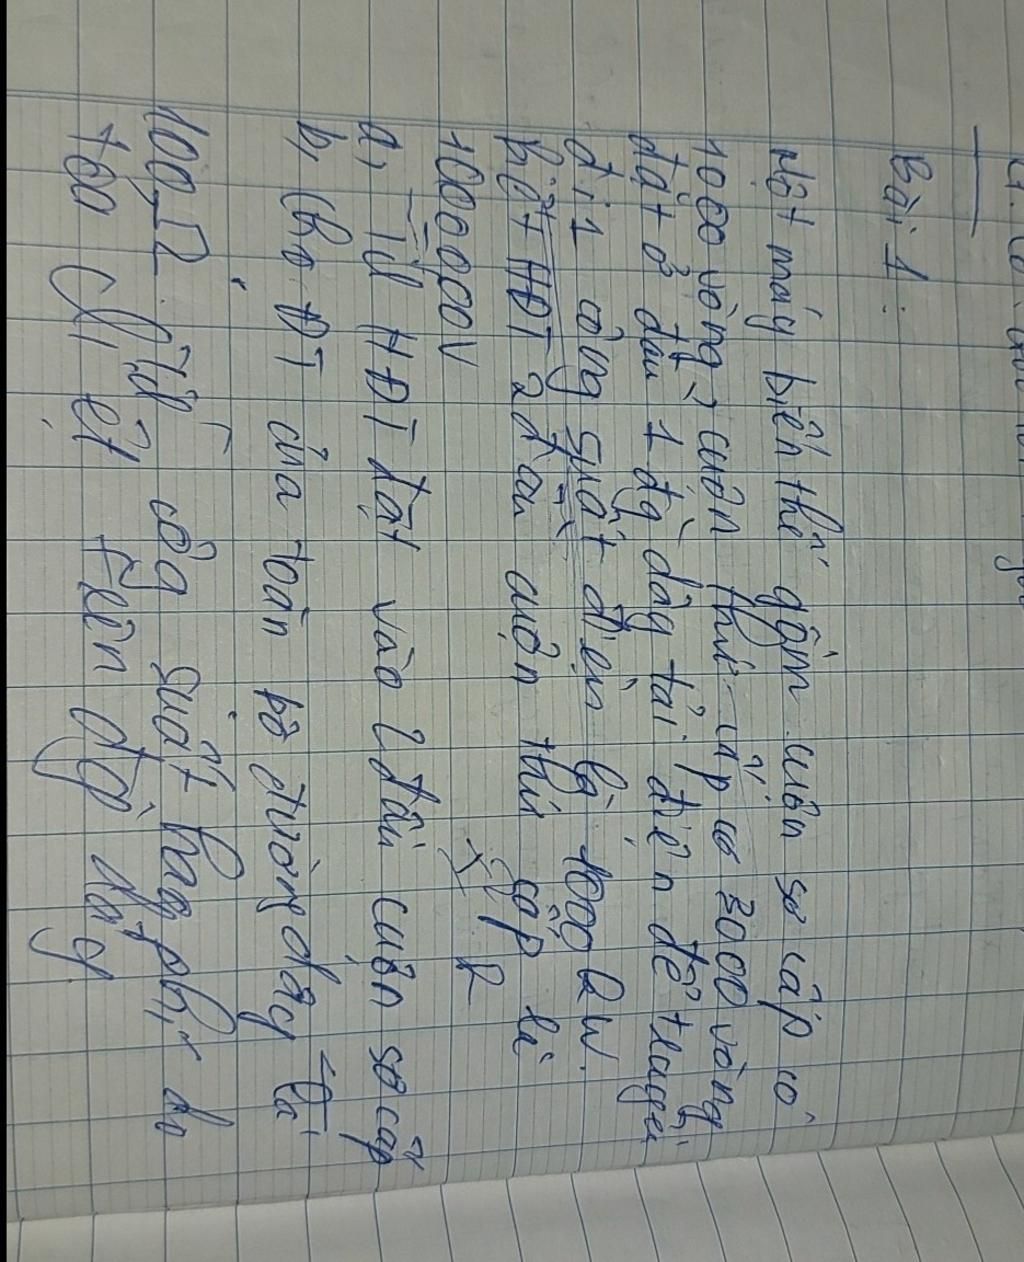 Bài 1:
Một máy biến thế gồm cuôn sơ cấp có
1000 vòng, cuôn thứ cấp có 3000 vòng
đặt ở đầu 1 đg dây tải điện để truyền
đi 1 công suất điện là 1000 kW.
biết HĐT 2 đầu cuộn thứ cấp là
100000V
a, Tìh HĐT đặt vào 2 đầu cuộn sơ cấp
b, Cho ĐT của toàn bộ đường dây là
100 Ω. Tíh côg suất hao phí do
tỏa nhiệt trên đg dây